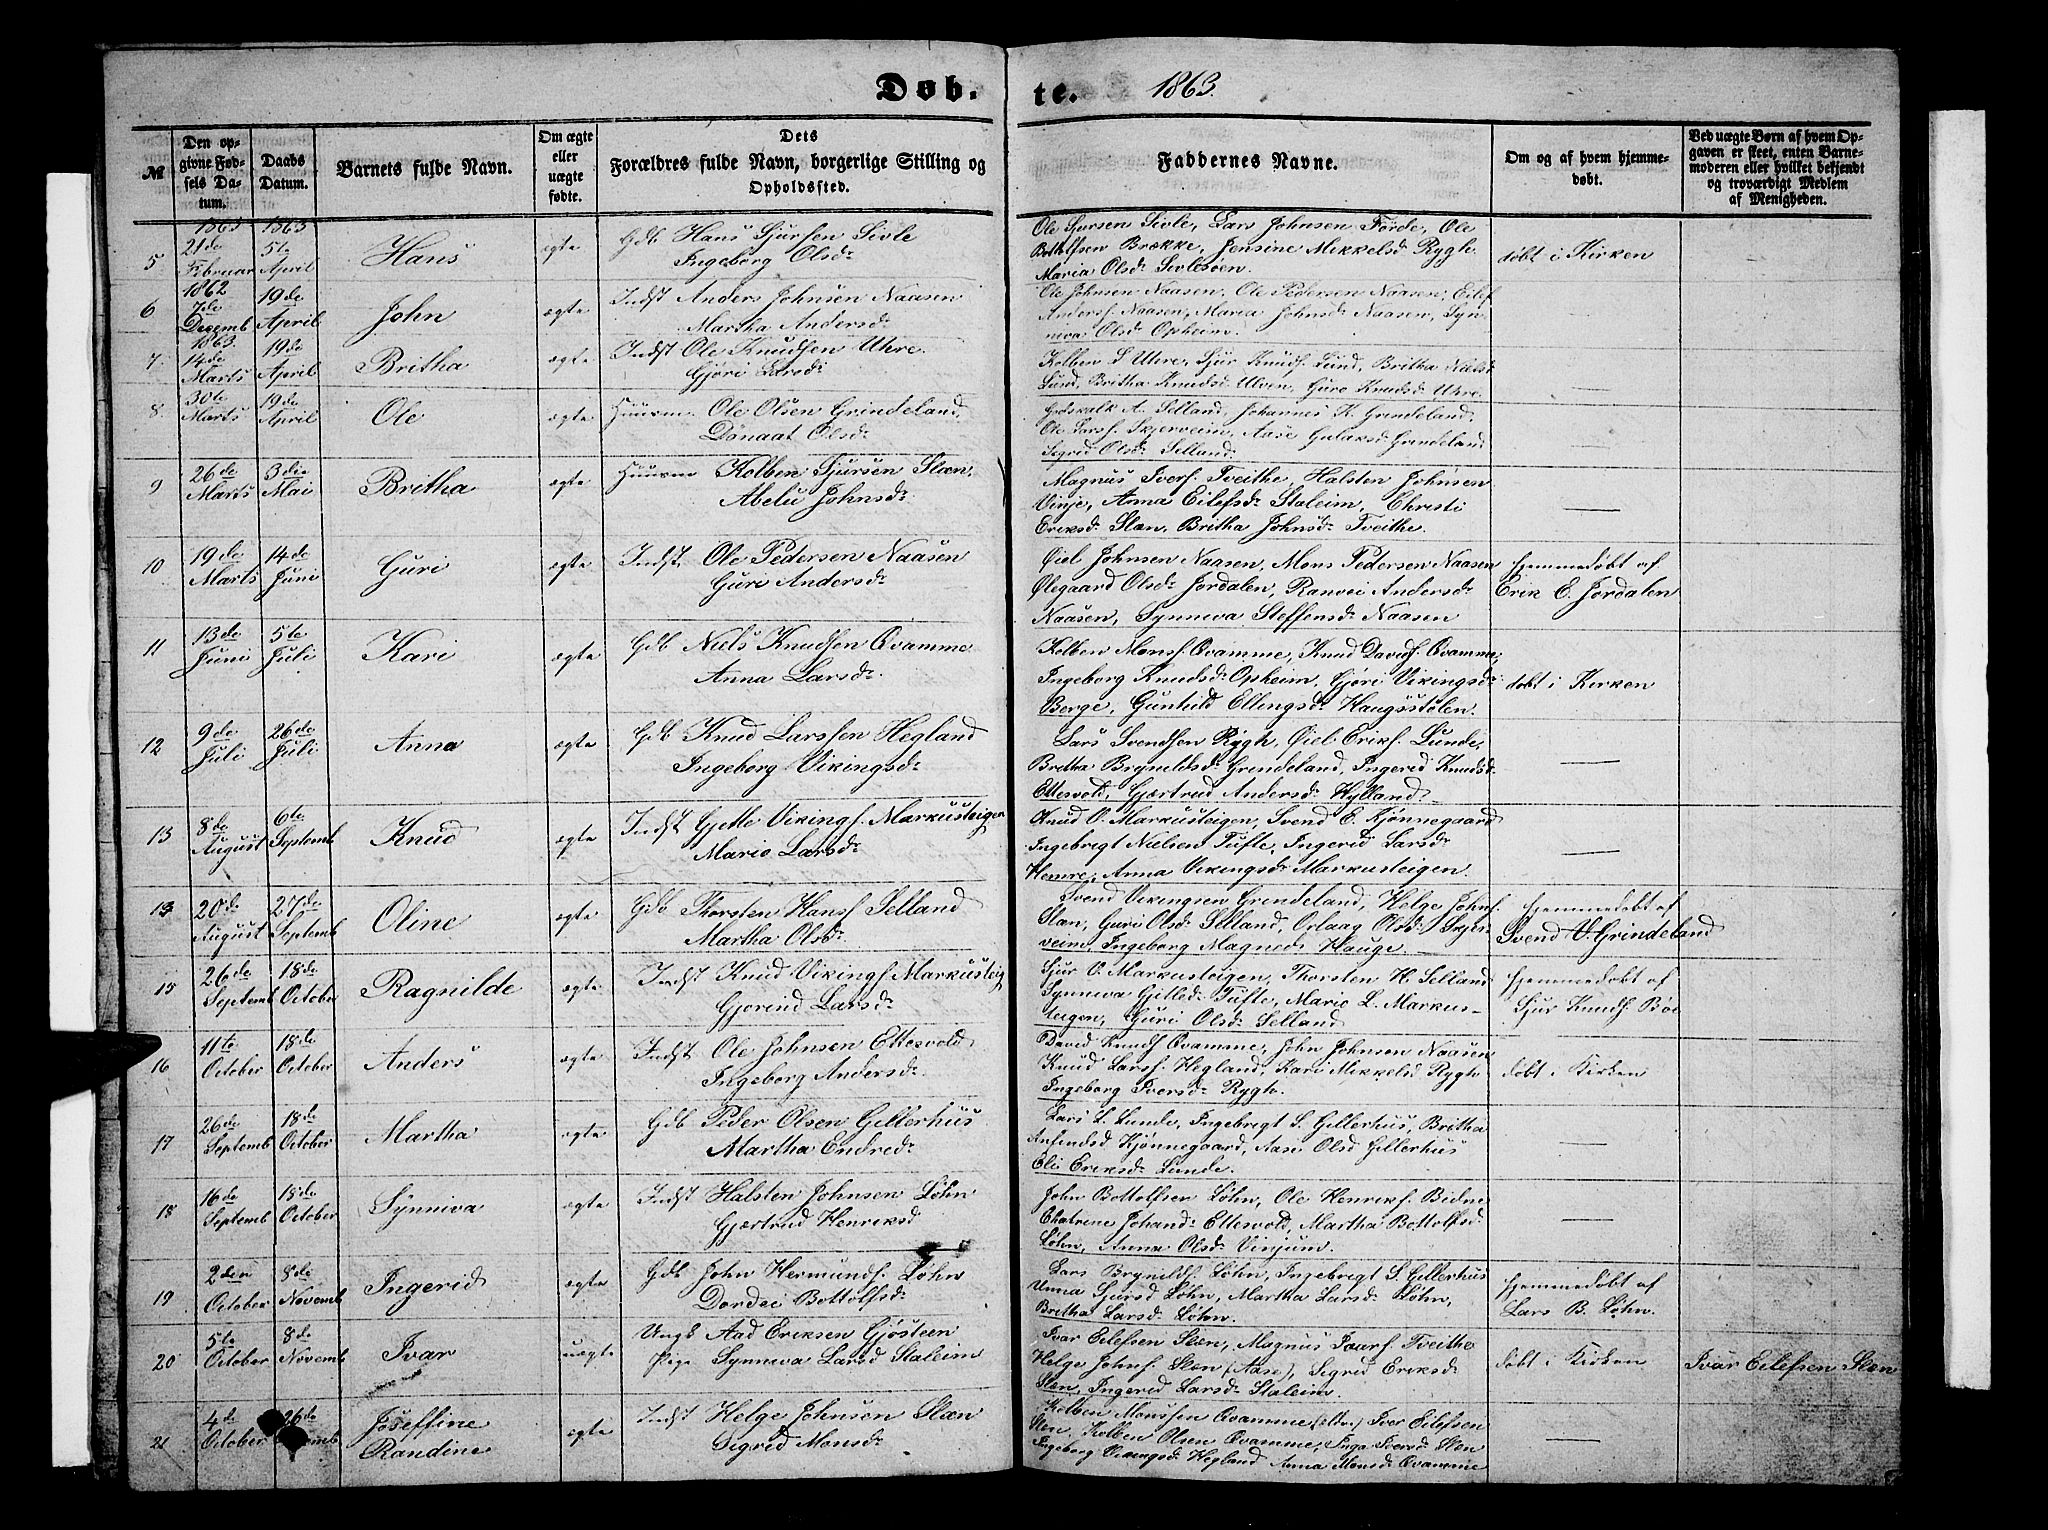 Døb.
te.
1863.
№
Den opgivne Fødsels Datum.
Daabs Datum.
Barnets fulde Navn.
Om ægte eller uægte fødte.
Dets Forældres fulde Navn, borgerlige Stilling og Opholdssted.
Faddernes Navne.
Om og af hvem hjemmedøbt.
Ved uægte Børn af hvem Opgaven er skeet, enten Barnemoderen eller hvilket bekjendt og troværdigt Medlem af Menigheden.
1863 1863
5 21de Februar 5te April Hans ægte Gdb Hans Sjursen Sivle
Ingeborg Olsdr
Ole Sjursen Sivle, Lars Johnsen Førde, Ole
Bottolfsen Brække, Jensine Mikkelsd Rygh
Maria Olsdr Sivlesøen.
døbt i Kirken
1862
6 7de Decemb 19de April John ægte Indst Anders Johnsen Naasen
Martha Andersdr
Ole Johnsen Naasen, Ole Pedersen Naasen, Eilef
Andersf. Naasen, Maria Johnsdr Naasen, Synniva Olsdr Opheim.
1863.
7 14de Marts 19de April Britha ægte Indst Ole Knudsen Uhre
Gjøri Larsdr
Kolben S Uhre, Sjur Knudf. Lund, Britha Nielsd
Lund, Britha Knudsd Ulven, Guro Knudsdr Uhre
8. 30te Marts 19de April Ole ægte Huusm Ole Olsen Grindeland
Dønaat Olsdr
Godskalk A. Selland, Johannes K. Grindeland
Ole Larsf. Skjerveim, Aase Gulaksdr Grindeland
Sigrid Olsdr Selland
9 26de Marts 3die Mai Britha ægte Huusm Kolben Sjursen Slæn
Abelu Johnsdr
Magnus Iverf. Tveithe, Halsten Johnsen
Vinje, Anna Eilefsdr Staleim, Christi
Eriksdr Slæn, Britha Johnsdr Tveithe.
10 19de Marts 14de Juni Guri ægte Indst. Ole Pedersen Naasen
Guri Andersdr
Øiel Johnsen Naasen, Mons Pedersen Naasen
Ølegaard Olsdr Jordalen, Ranvei Andersdr
Naasen, Synneva Steffensdr Naasen
hjemmedøbt af
Erik E. Jordalen
11 13de Juni 5te Juli Kari ægte Gdb Niels Knudsen Qvamme
Anna Larsdr
Kolben Monsf. Qvamme, Knud Davidf. Qvamme,
Ingeborg Knudsdr Opheim, Gjøri Vikingsdr
Berge, Gunhild Ellingsdr Haugsstølen.
døbt i Kirken
12 9de Juli 26de Juli Anna ægte Gdb Knud Larssen Hegland
Ingeborg Vikingsdr
Lars Svendsen Rygh, Øiel Eriksf. Lunde,
Britha Brynildsdr Grindeland, Ingerid Knudsdr
Ettesvold, Gjærtrud Andersdr Hylland
13 8de August 6te Septemb Knud ægte Indst Gjette Vikingf. Markusteigen
Mario Larsdr
Knud O. Markusteigen, Svend E. Kjønnegaard
Ingebrigt Nielsen Tufte, Ingerid Larsdr
Hemre, Anna Vikingsdr Markusteigen.
13 20de August 27de Septemb Oline ægte Gdb Thorsten Hansf Selland
Martha Olsdr
Svend Vikingsen Grindeland, Helge Johnf.
Slæn, Guri Olsdr Selland, Orlaag Olsdr Skjerveim, Ingeborg Magneds Hauge.
hjemmedøbt af
Svend V. Grindeland
15 26de Septemb 18de October Ragnilde ægte Indst Knud Vikingf. Markusteig
Gjørind Larsdr
Sjur O. Markusteigen, Thorsten H. Selland
Synneva Gitledr Tufte, Mario L. Markusteigen, Guri Olsdr Selland
hjemmedøbt af
Sjur Knudf. Bøe
16 11te October 18de October Anders ægte Indst Ole Johnsen Ettesvold
Ingeborg Andersdr
David Knudf Qvamme, John Johnsen Naasen
Knud Larsf. Hegland, Kari Mikkelsd Rygh
Ingeborg Iversdr Rygh.
døbt i Kirken
17 26de Septemb 18de October Martha ægte Gdb Peder Olsen Gillerhus
Martha Endredr
Lars L. Lunde, Ingebrigt S. Gillerhus, Britha
Anfendsd Kjønnegaard, Aase Olsd Gillerhus
Eli Eriksdr Lunde.
18 16de Septemb 18de October Synniva ægte Indst Halsten Johnsen Løhn
Gjærtrud Henriksd
John Bottolfsen Løhn, Ole Henriksf. Bidne
Chatrine Johandr Ettesvold, Martha Bottolfsd.
Løhn, Anna Olsdr Vinjum.
19 2den October 8de Novemb Ingerid ægte Gdb John Hermundf. Løhn
Dordei Bottolfsdr
Lars Brynildf. Løhn, Ingebrigt S. Gillerhus
Unna Sjursd Løhn, Martha Larsdr Løhn,
Britha Larsdr Løhn.
hjemmedøbt af
Lars B. Løhn.
20 5te October 8de Novemb Ivar uægte Ungk Aad Eriksen Gjøsteen
Pige Synneva Larsd Staleim
Ivar Eilefsen Slæn, Magnus Ivarf. Tveithe
Helge Johnf. Slæn (Aase), Sigrid Eriksdr
Slæn, Ingerid Larsdr Staleim.
døbt i Kirken
Ivar Eilefsen Slæn
21 4de October 26de Joseffine
Randine ægte Indst Helge Johnsen Slæn
Sigrid Monsdr
Kolben Monssen Qvamme, Iver Eilefsen
Slæn, Kolben Olsen Qvamme, Inga Iversd Slæn
Ingeborg Vikingsdr Hegland Anna Monsdr Qvamme